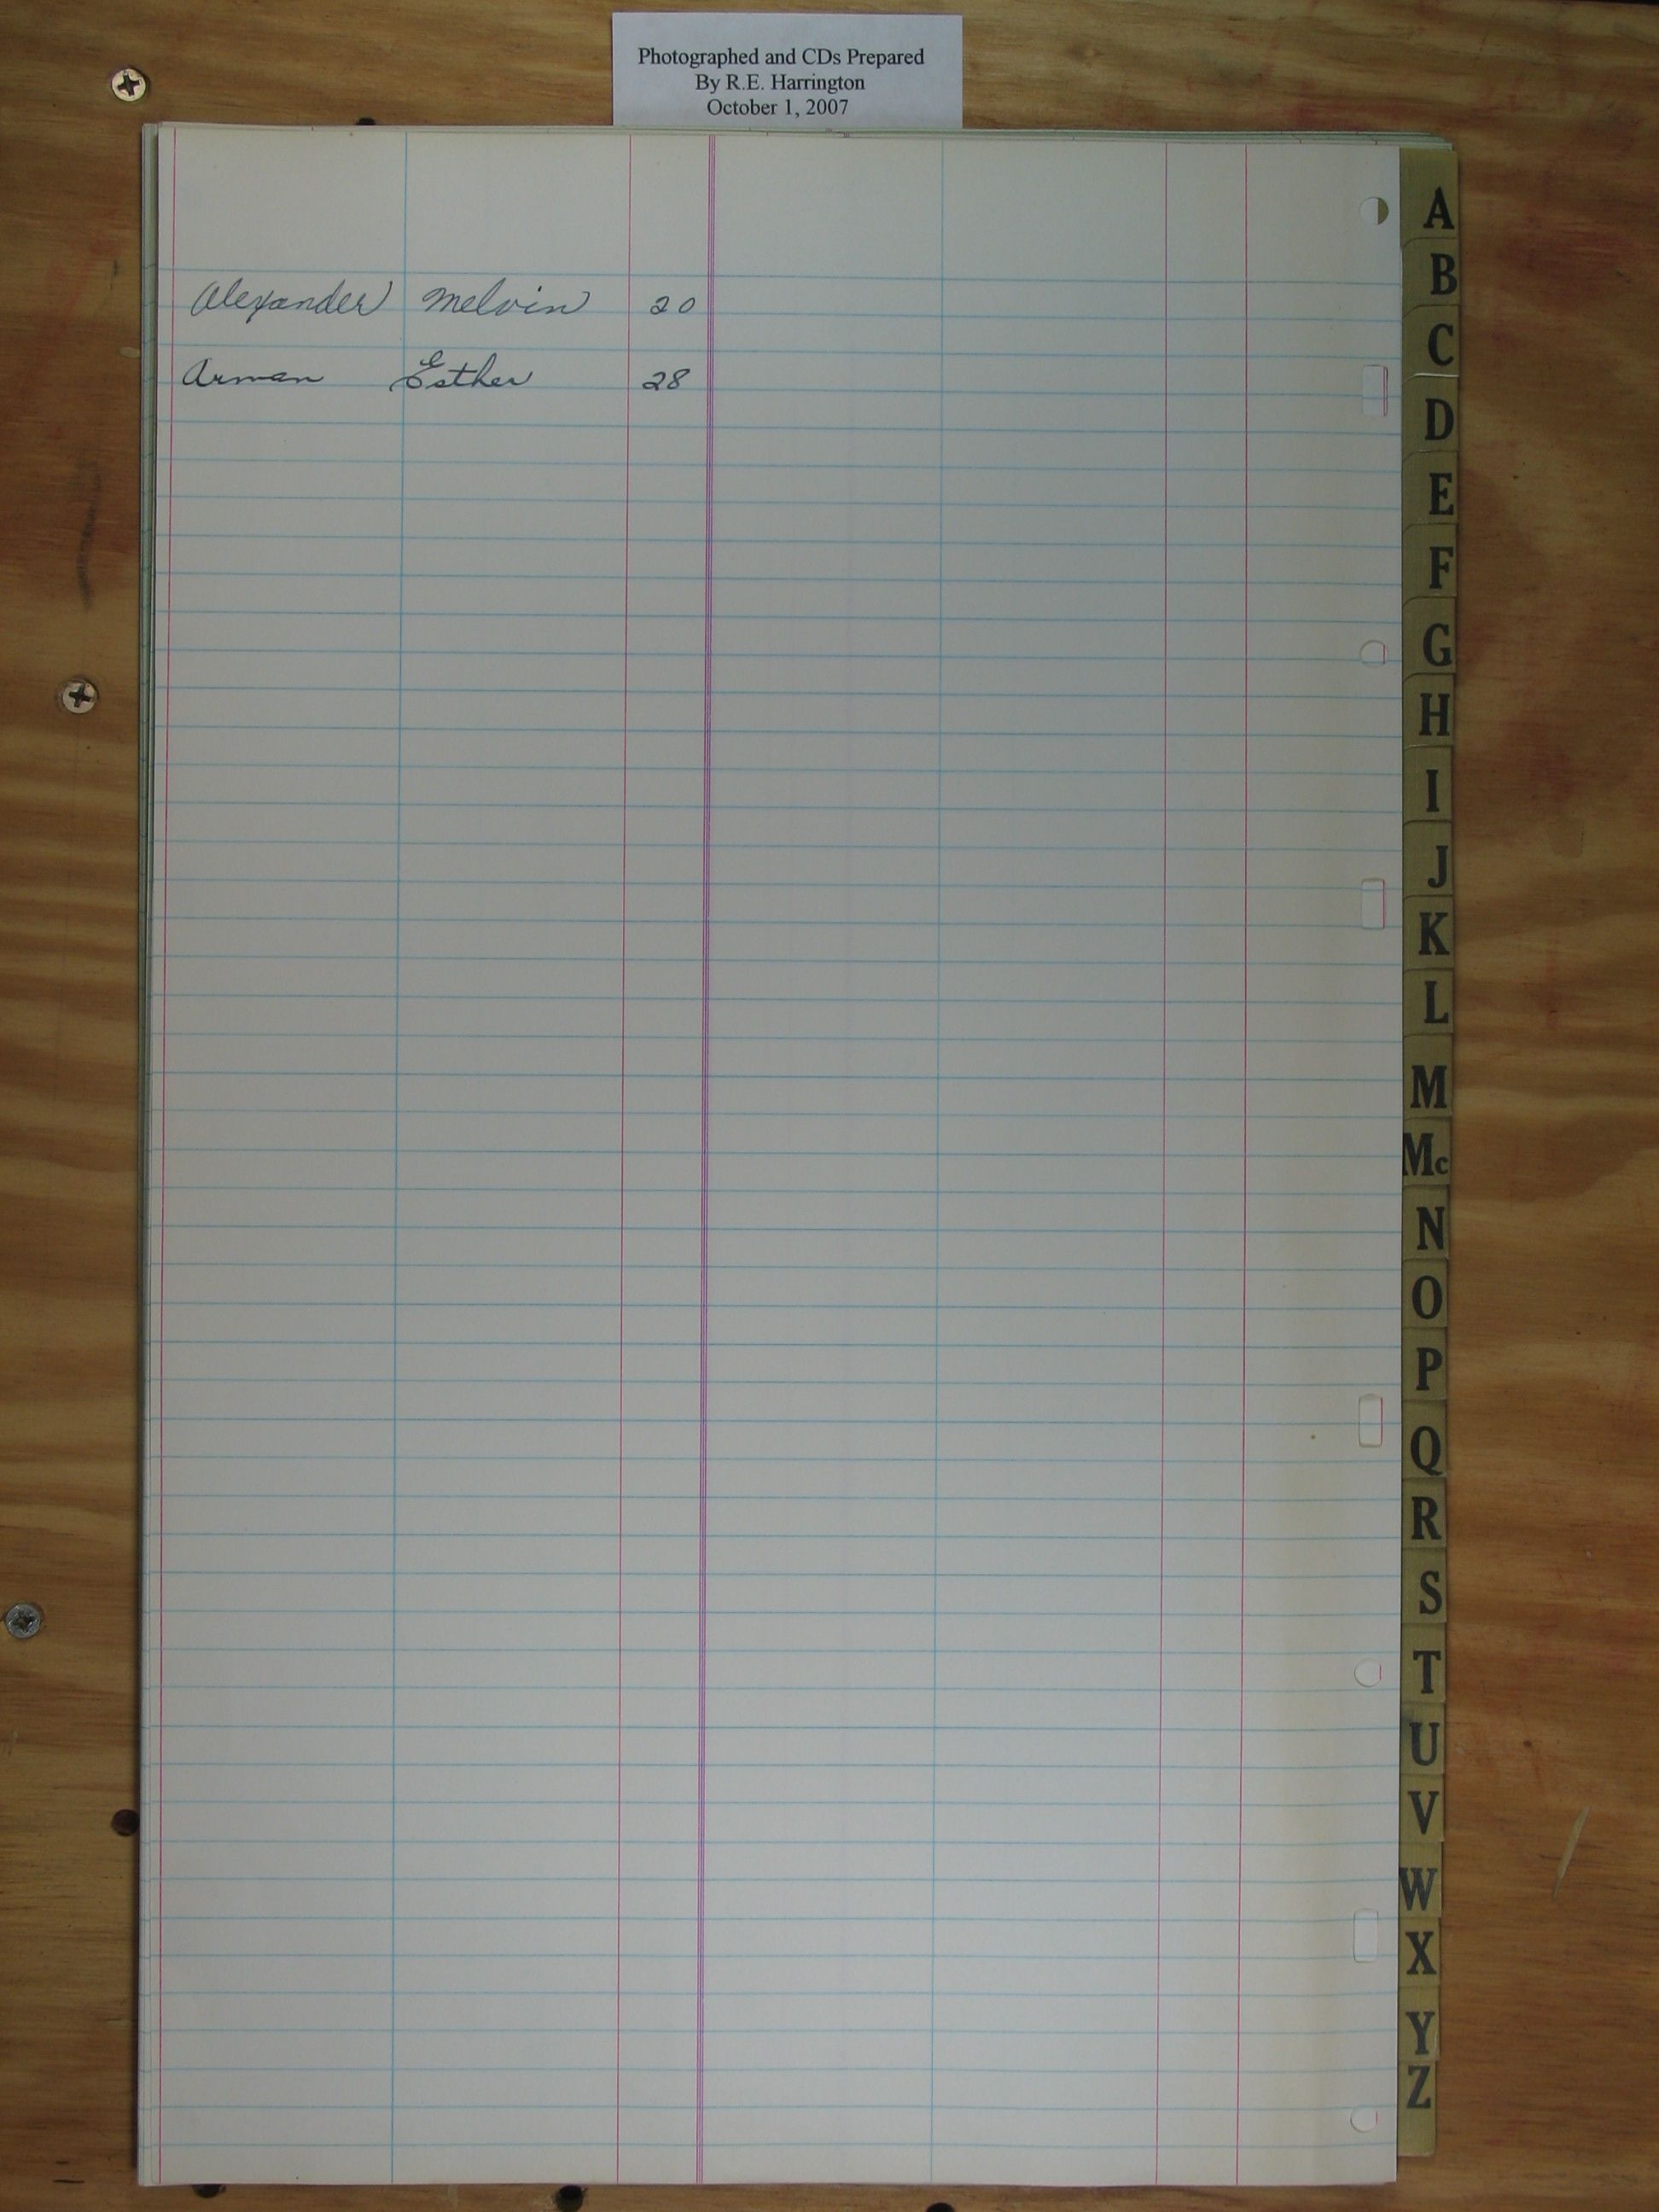 Photographed and CDs Prepared
By R.E. Harrington
October 1, 2007
Alexander Melvin 20
Arman Esther 28
A
B
C
D
E
F
G
H
I
J
K
L
M
Mc
N
O
P
Q
R
S
T
U
V
W
X
Y
Z